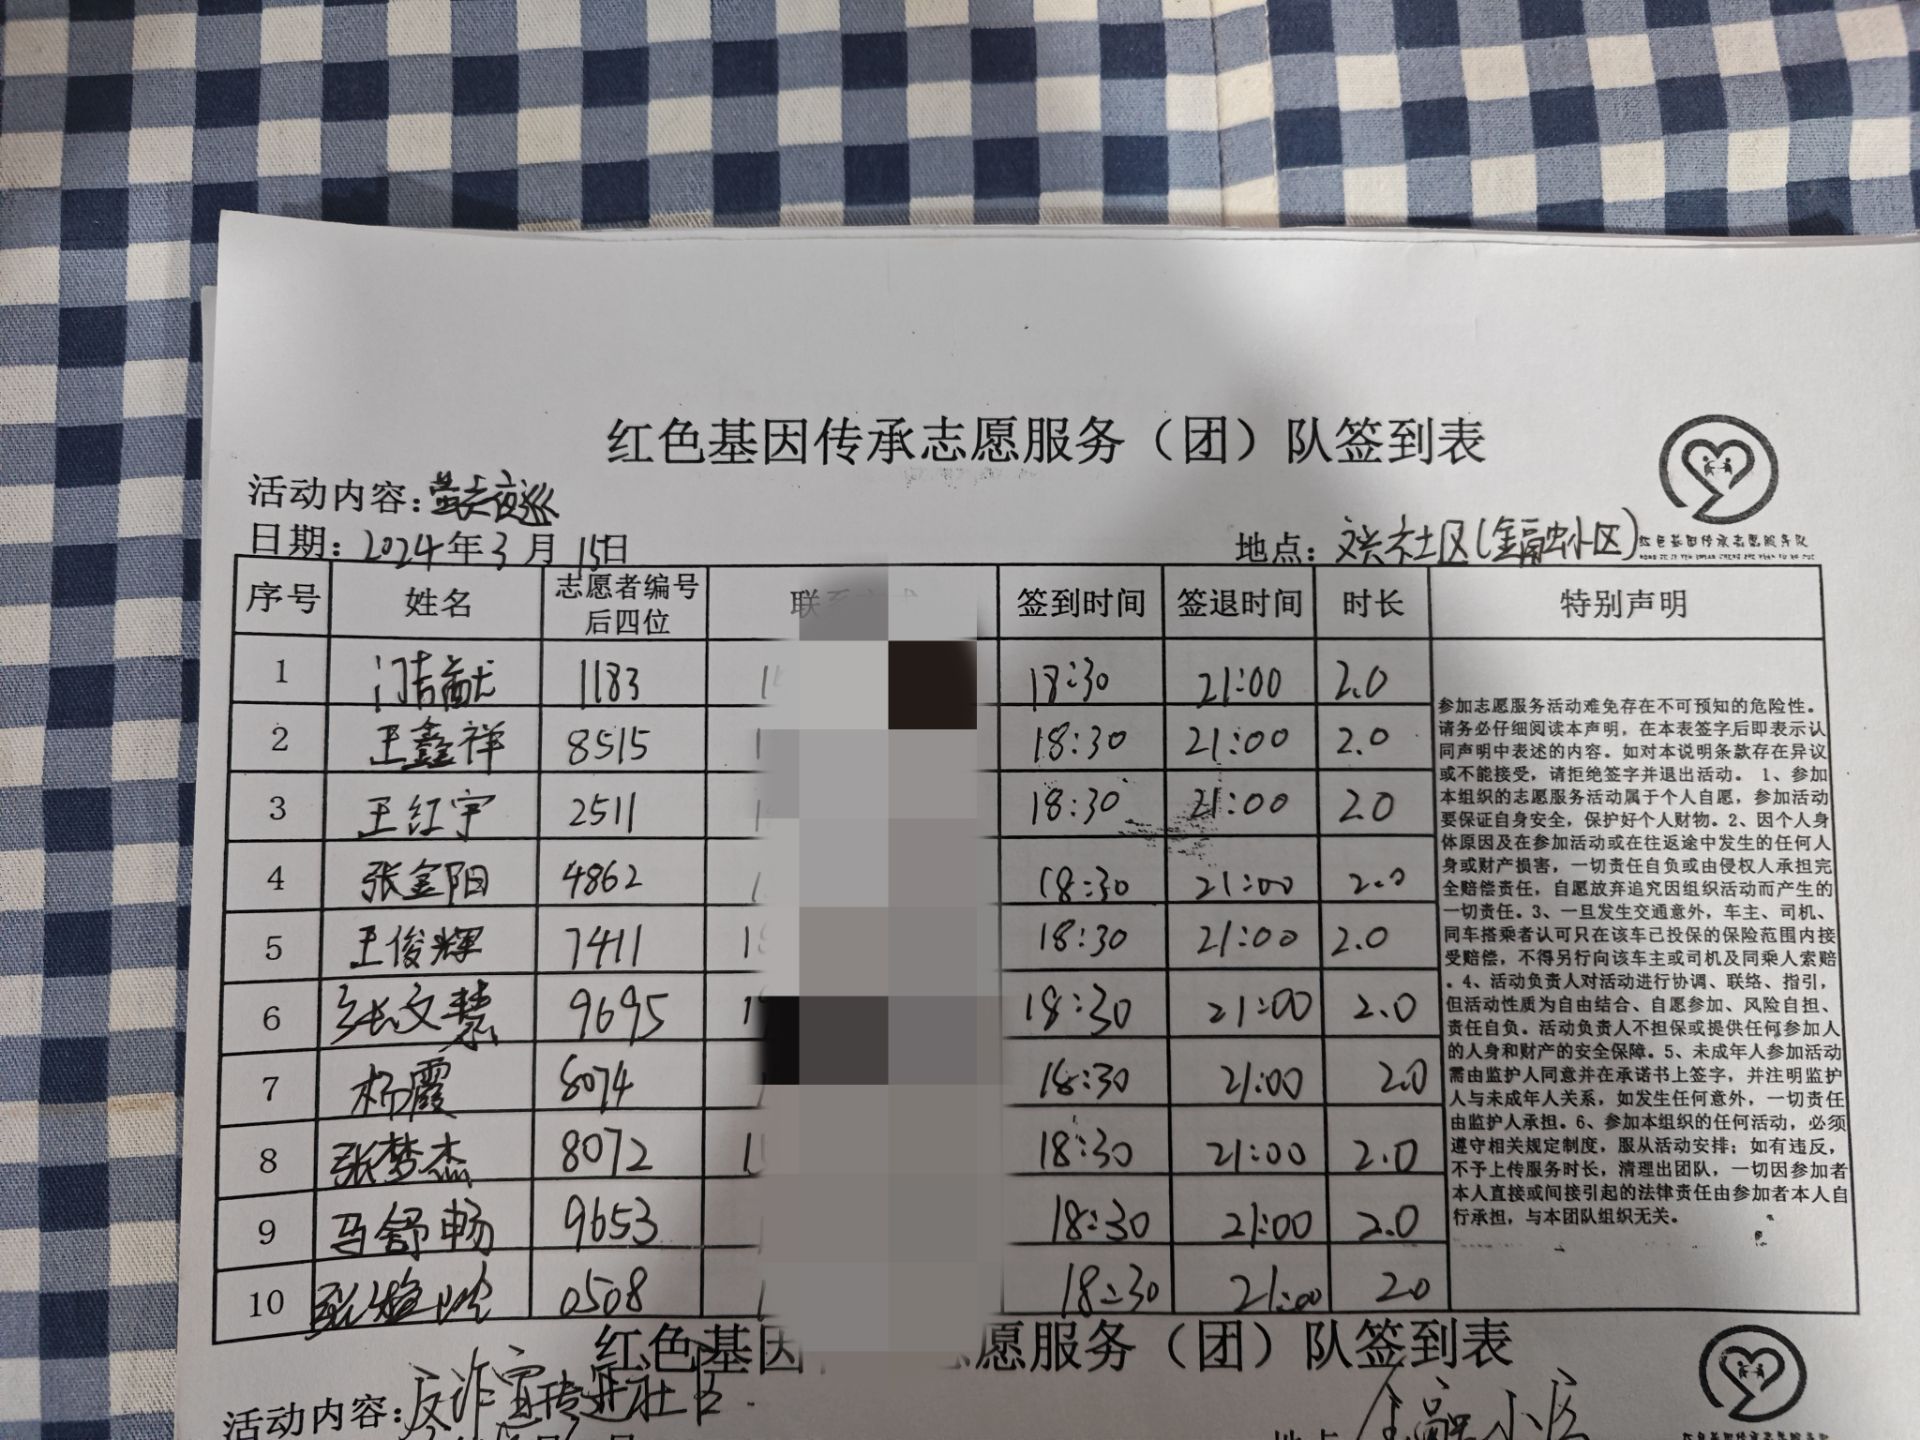 红色基因传承志愿服务（团）队签到表
活动内容：萤火夜巡
日期：2024年3月15日
地点：文兴社区(金融小区)
红色基因传承志愿服务队
序号 姓名 志愿者编号后四位 联系方式 签到时间 签退时间 时长 特别声明
1 1183 18:30 21:00 2.0
2 王鑫祥 8515 18:30 21:00 2.0
3 王红宇 2511 18:30 21:00 2.0
4 张金阳 4862 18:30 21:00 2.0
5 王俊辉 7411 18:30 21:00 2.0
6 张文慧 9695 18:30 21:00 2.0
7 杨霞 8074 18:30 21:00 2.0
8 张梦杰 8072 18:30 21:00 2.0
9 马舒畅 9653 18:30 21:00 2.0
10 0508 18:30 21:00 2.0
参加志愿服务活动难免存在不可预知的危险性。
请务必仔细阅读本声明，在本表签字后即表示认
同声明中表述的内容。如对本说明条款存在异议
或不能接受，请拒绝签字并退出活动。 1、参加
本组织的志愿服务活动属于个人自愿，参加活动
要保证自身安全，保护好个人财物。2、因个人身
体原因及在参加活动或在往返途中发生的任何人
身或财产损害，一切责任自负或由侵权人承担完
全赔偿责任，自愿放弃追究因组织活动而产生的
一切责任。3、一旦发生交通意外，车主、司机、
同车搭乘者认可只在该车已投保的保险范围内接
受赔偿，不得另行向该车主或司机及同乘人索赔
。4、活动负责人对活动进行协调、联络、指引，
但活动性质为自由结合、自愿参加、风险自担、
责任自负。活动负责人不担保或提供任何参加人
的人身和财产的安全保障。5、未成年人参加活动
需由监护人同意并在承诺书上签字，并注明监护
人与未成年人关系，如发生任何意外，一切责任
由监护人承担。6、参加本组织的任何活动，必须
遵守相关规定制度，服从活动安排；如有违反，
不予上传服务时长，清理出团队，一切因参加者
本人直接或间接引起的法律责任由参加者本人自
行承担，与本团队组织无关。
红色基因 志愿服务（团）队签到表
活动内容：反诈宣传进社区
地点 金融小区